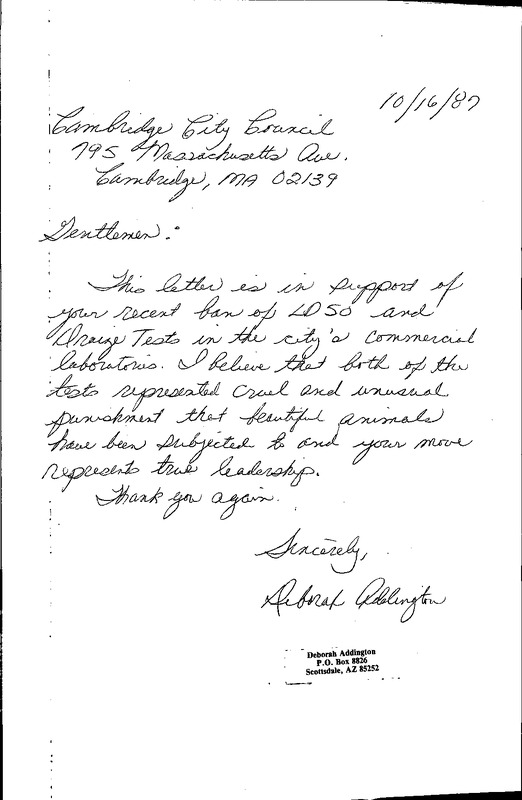 10/16/87
Cambridge City Council
795 Massachusetts Ave.
Cambridge, MA 02139
Gentlemen:
This letter is in support of
your recent ban of LD50 and
Draize Tests in the city's commercial
laboratories. I believe that both of the
tests represented cruel and unusual
punishment that beautiful animals
have been subjected to and your move
represents true leadership.
Thank you again.
Sincerely,
Deborah Addington
Deborah Addington
P.O. Box 8826
Scottsdale, AZ 85252